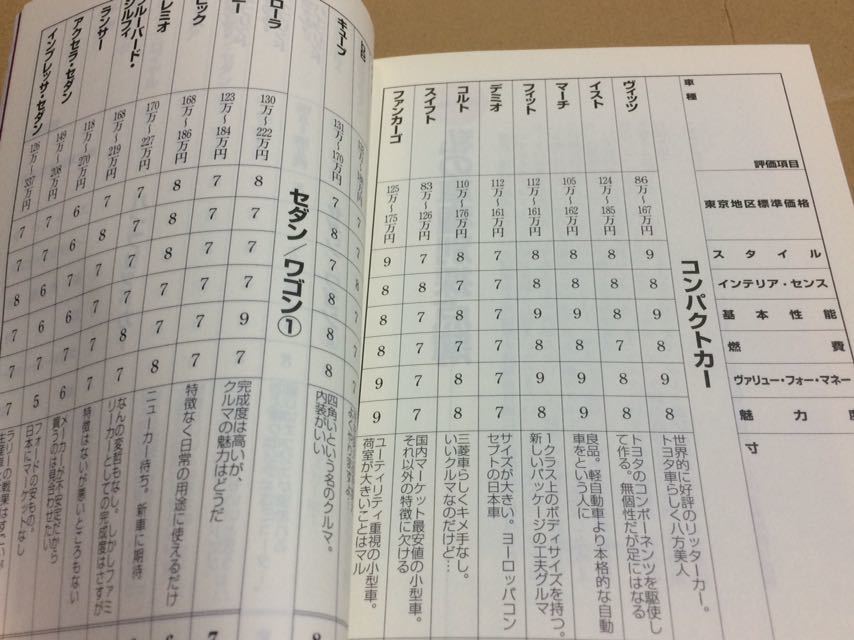 車種
評価項目
東京地区標準価格
スタイル
インテリア・センス
基本性能
燃費
ヴァリュー・フォー・マネー
魅力
寸
コンパクトカー
ヴィッツ
86万〜167万円
9
8
9
8
8
8
世界的に好評のリッターカー。
トヨタ車らしく八方美人
イスト
124万〜185万円
8
8
8
7
8
8
トヨタのコンポーネンツを駆使し
て作る。無個性だが足にはなる
マーチ
105万〜162万円
8
9
8
8
9
8
良品。軽自動車より本格的な自動
車をという人に
フィット
112万〜161万円
7
8
9
8
9
8
1クラス上のボディサイズを持つ。
新しいパッケージの工夫グルマ
デミオ
112万〜161万円
7
7
8
7
7
7
サイズが大きい。ヨーロッパコン
セプトの日本車
コルト
110万〜176万円
8
8
8
7
8
8
三菱車らしくキメ手なし。
いいクルマなのだけど…
スイフト
83万〜126万円
7
8
7
7
7
7
国内マーケット最安値の小型車。
それ以外の特徴に欠ける
ファンカーゴ
125万〜175万円
9
8
8
8
9
9
ユーティリティ重視の小型車。
荷室が大きいことはマル
キューブ
131万〜170万円
7
7
8
8
8
四角いという名のクルマ。
内装がいい
セダン/ワゴン①
ローラ
130万〜222万円
8
7
7
9
7
完成度は高いが、
クルマの魅力はどうだ
ニー
123万〜184万円
7
7
7
7
7
特徴なく日常の用途に使えるだけ
レック
168万〜186万円
8
8
7
7
8
ニューカー待ち。新車に期待
レミオ
ブルーバード・
シルフィ
170万〜227万円
7
7
7
8
7
なんの変哲もなし。しかしファミ
リーカーとしての完成度はさすが
ランサー
168万〜219万円
7
7
7
7
7
特徴はないが悪いところもない
アクセラ・セダン
118万〜270万円
6
6
6
6
6
メーカーが不安定だから
買うのは見合わせたい
149万〜208万円
7
7
6
6
5
フォードの安もの。
日本にマーケットなし
インプレッサ・セダン
126万〜337万円
7
7
8
7
7
ラリーの戦果はすごいが